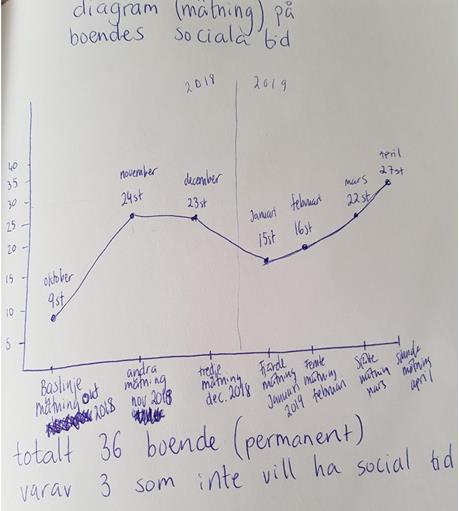 diagram (mätning) på
boendes sociala tid
2018 2019
40
35
30
25
20
15
10
5
oktober
9st
november
24st
december
23st
Januari
15st
februari
16st
mars
22st
april
27st
Baslinje
mätning okt
2018
andra
mätning
nov 2018
tredje
mätning
dec. 2018
Fjärde
mätning
Januari
2019
Femte
mätning
februari
Sjätte
mätning
mars
Sjunde
mätning
april
totalt 36 boende (permanent)
varav 3 som inte vill ha social tid